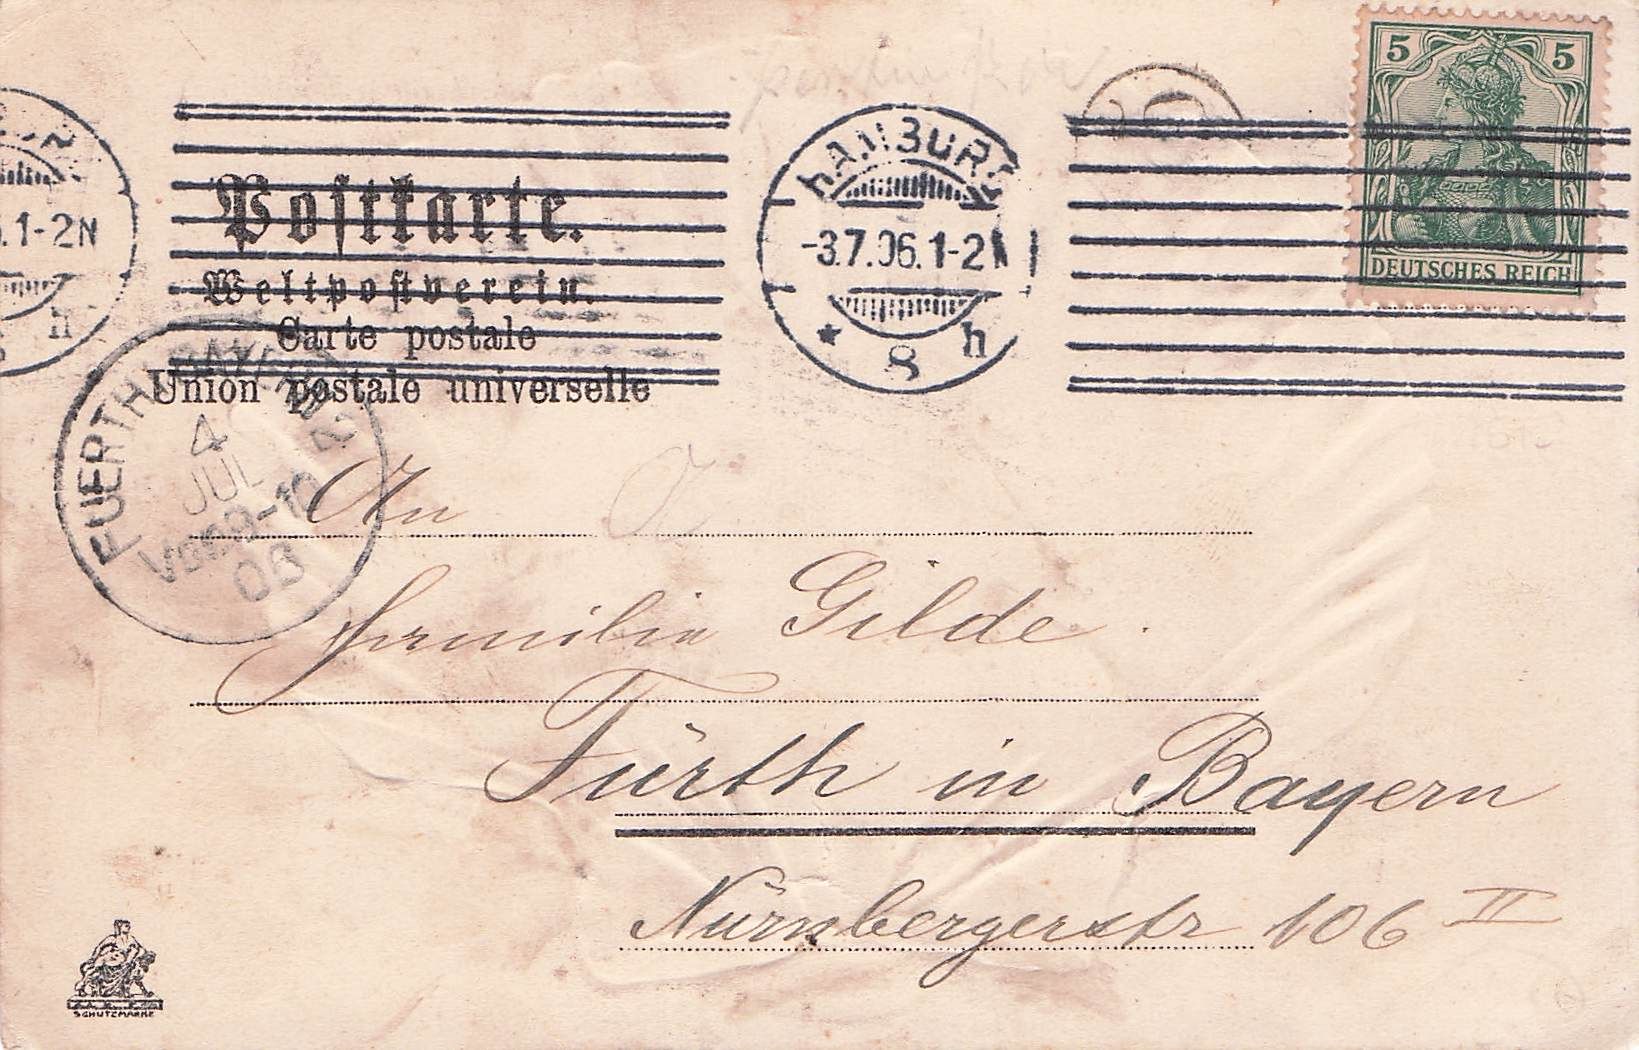 5 5
DEUTSCHES REICH
HAMBURG
-3.7.06.1-2N
* 8 h
.1-2N
h
Postkarte.
Weltpostverein.
Carte postale
Union postale universelle
FUERTH
4
JUL
Vor 9-10
06
An
Familie Gilde.
Fürth in Bayern
Nürnbergerstr 106 II
SCHUTZMARKE